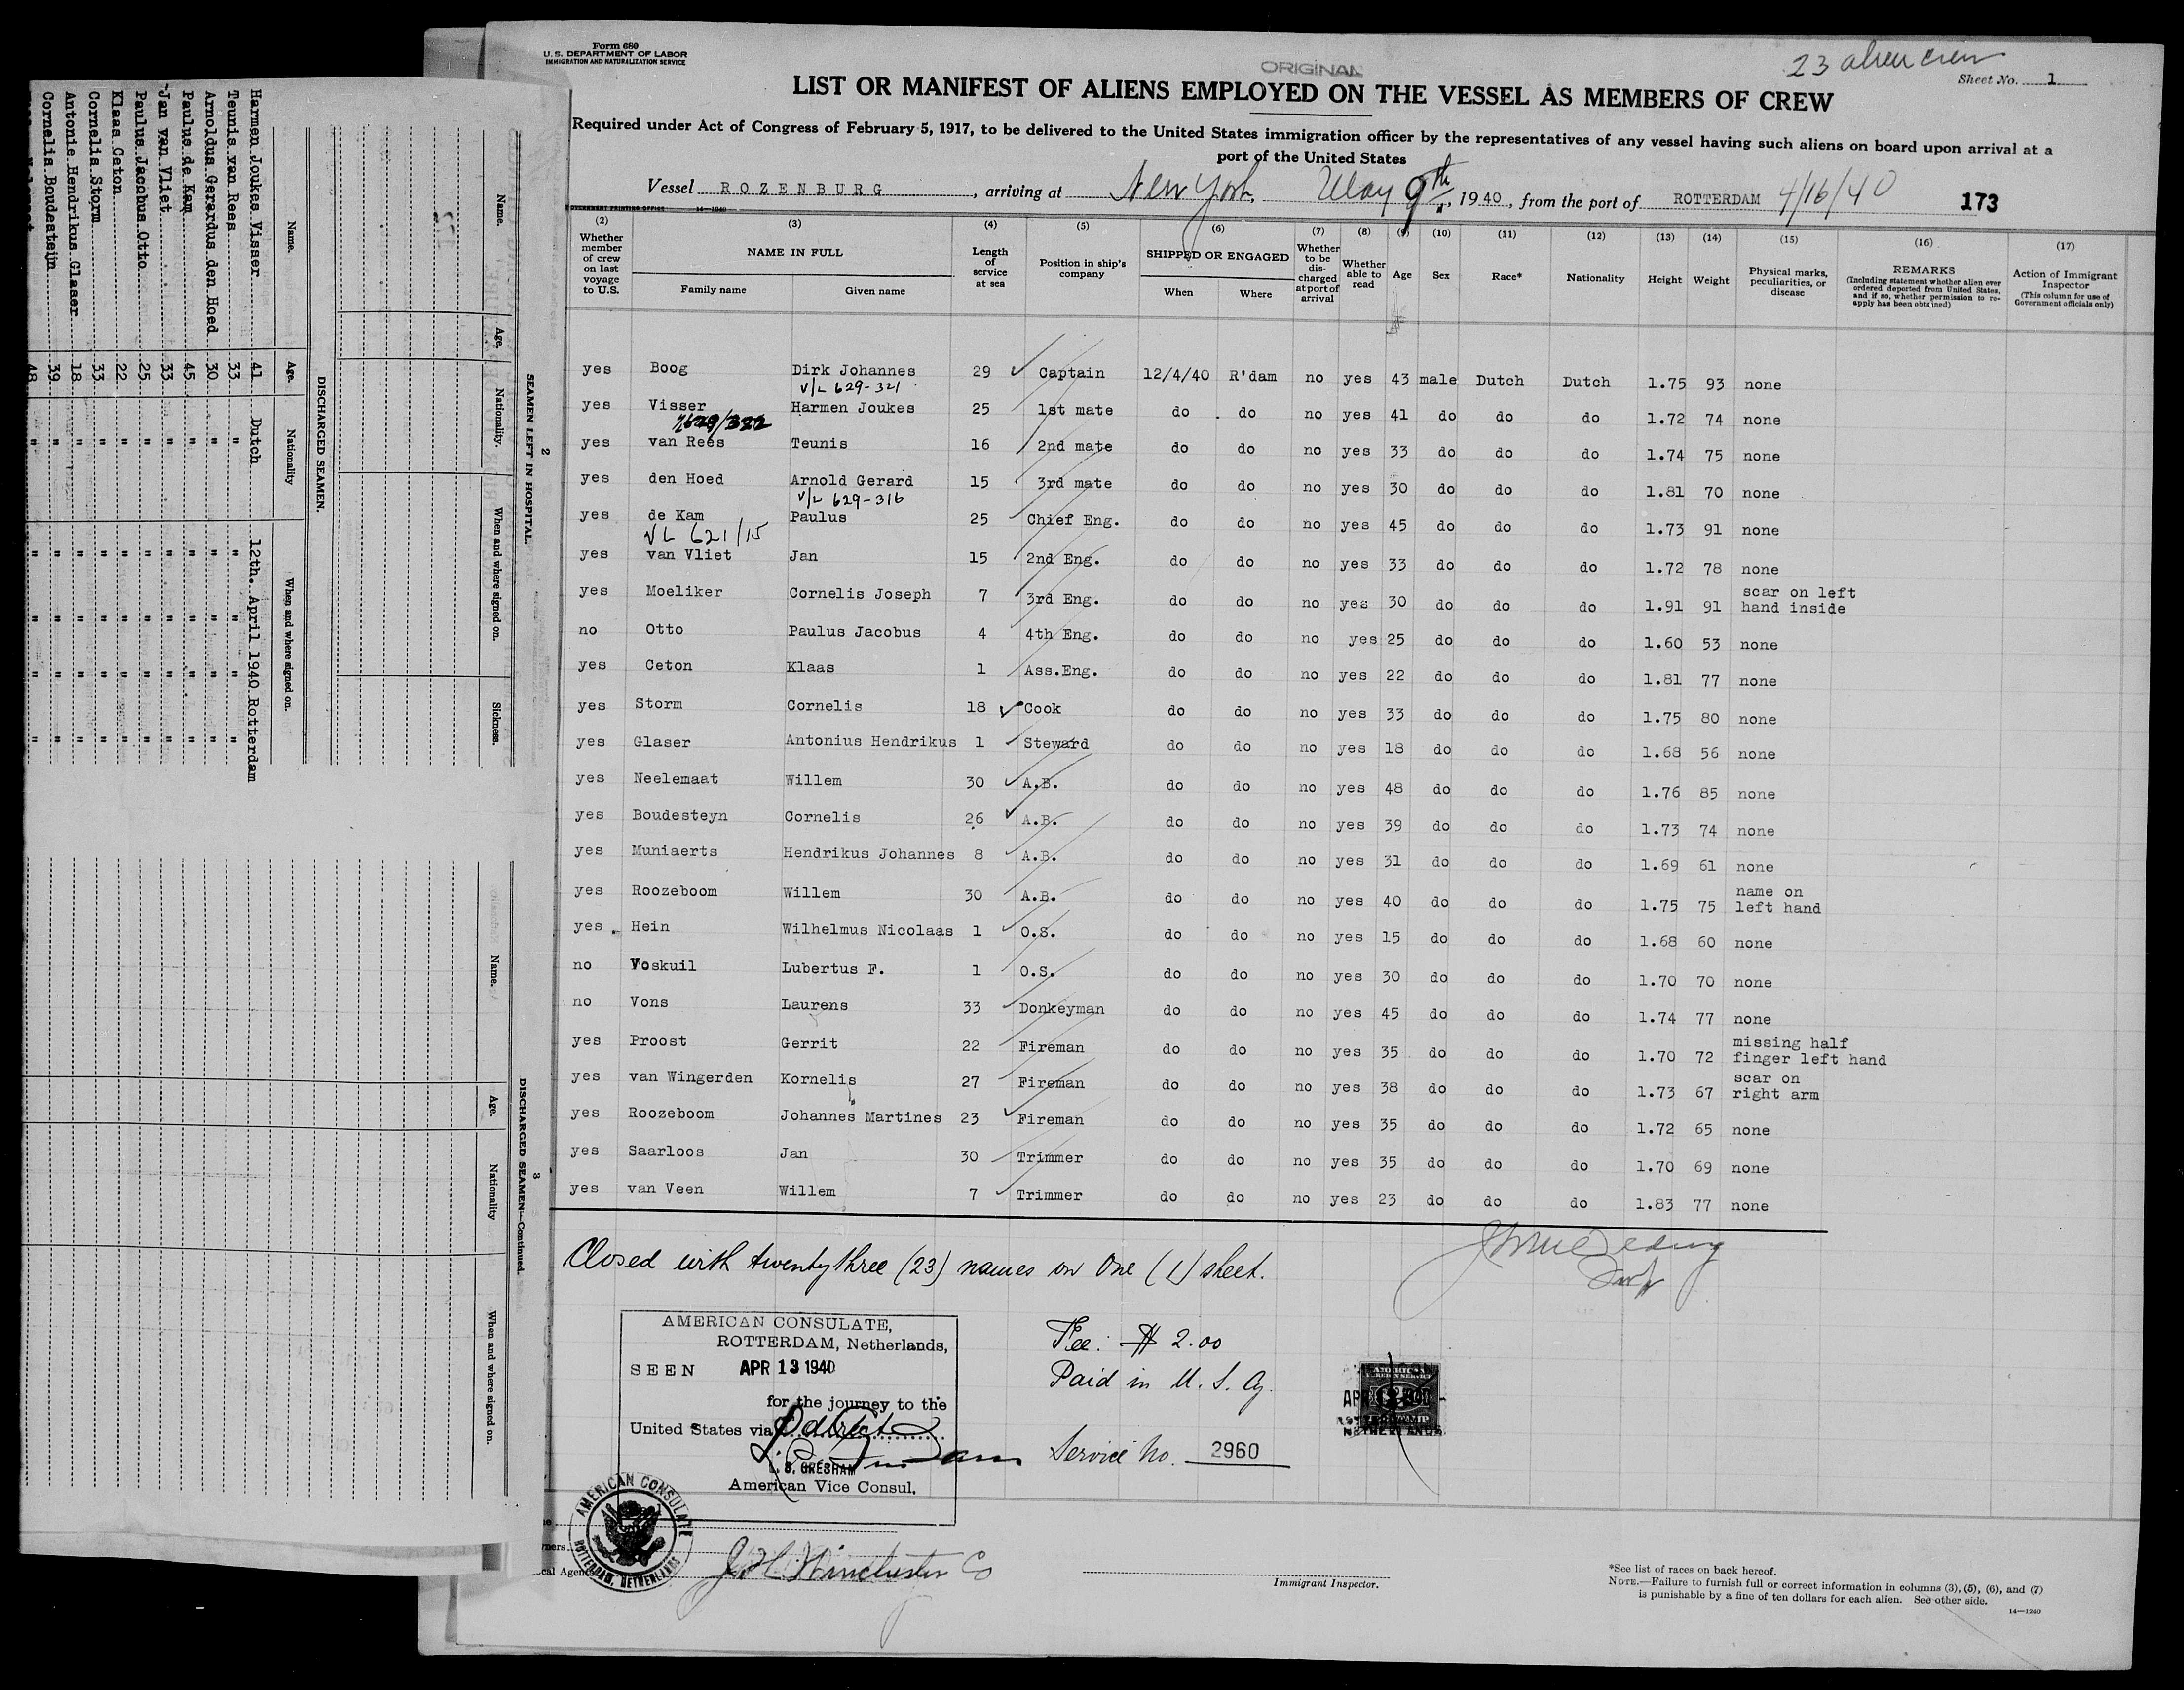 Form 680
U. S. DEPARTMENT OF LABOR
IMMIGRATION AND NATURALIZATION SERVICE
ORIGINAL
23 alien crew
Sheet No. 1
LIST OR MANIFEST OF ALIENS EMPLOYED ON THE VESSEL AS MEMBERS OF CREW
Required under Act of Congress of February 5, 1917, to be delivered to the United States immigration officer by the representatives of any vessel having such aliens on board upon arrival at a
port of the United States
Vessel ROZENBURG, arriving at New York, May 9th, 1940, from the port of ROTTERDAM 4/16/40 173
GOVERNMENT PRINTING OFFICE 14—1240
(2) (3) (4) (5) (6) (7) (8) (9) (10) (11) (12) (13) (14) (15) (16) (17)
Whether member of crew on last voyage to U.S. NAME IN FULL Family name Given name Length of service at sea Position in ship's company SHIPPED OR ENGAGED When Where Whether to be discharged at port of arrival Whether able to read Age Sex Race* Nationality Height Weight Physical marks, peculiarities, or disease REMARKS (Including statement whether alien ever ordered deported from United States, and if so, whether permission to reapply has been obtained) Action of Immigrant Inspector (This column for use of Government officials only)
yes Boog Dirk Johannes 29 Captain 12/4/40 R'dam no yes 43 male Dutch Dutch 1.75 93 none
V/L 629-321
yes Visser Harmen Joukes 25 1st mate do do no yes 41 do do do 1.72 74 none
629/322
yes van Rees Teunis 16 2nd mate do do no yes 33 do do do 1.74 75 none
yes den Hoed Arnold Gerard 15 3rd mate do do no yes 30 do do do 1.81 70 none
V/L 629-316
yes de Kam Paulus 25 Chief Eng. do do no yes 45 do do do 1.73 91 none
VL 621/15
yes van Vliet Jan 15 2nd Eng. do do no yes 33 do do do 1.72 78 none
yes Moeliker Cornelis Joseph 7 3rd Eng. do do no yes 30 do do do 1.91 91 scar on left hand inside
no Otto Paulus Jacobus 4 4th Eng. do do no yes 25 do do do 1.60 53 none
yes Ceton Klaas 1 Ass.Eng. do do no yes 22 do do do 1.81 77 none
yes Storm Cornelis 18 Cook do do no yes 33 do do do 1.75 80 none
yes Glaser Antonius Hendrikus 1 Steward do do no yes 18 do do do 1.68 56 none
yes Neelemaat Willem 30 A.B. do do no yes 48 do do do 1.76 85 none
yes Boudesteyn Cornelis 26 A.B. do do no yes 39 do do do 1.73 74 none
yes Muniaerts Hendrikus Johannes 8 A.B. do do no yes 31 do do do 1.69 61 none
yes Roozeboom Willem 30 A.B. do do no yes 40 do do do 1.75 75 name on left hand
yes Hein Wilhelmus Nicolaas 1 O.S. do do no yes 15 do do do 1.68 60 none
no Voskuil Lubertus F. 1 O.S. do do no yes 30 do do do 1.70 70 none
no Vons Laurens 33 Donkeyman do do no yes 45 do do do 1.74 77 none
yes Proost Gerrit 22 Fireman do do no yes 35 do do do 1.70 72 missing half finger left hand
yes van Wingerden Kornelis 27 Fireman do do no yes 38 do do do 1.73 67 scar on right arm
yes Roozeboom Johannes Martines 23 Fireman do do no yes 35 do do do 1.72 65 none
yes Saarloos Jan 30 Trimmer do do no yes 35 do do do 1.70 69 none
yes van Veen Willem 7 Trimmer do do no yes 23 do do do 1.83 77 none
Closed with twenty three (23) names on One (1) sheet.
AMERICAN CONSULATE,
ROTTERDAM, Netherlands,
SEEN APR 13 1940
for the journey to the
United States via direct
L. S. GRESHAM
American Vice Consul.
Fee: $ 2.00
Paid in U. S. Cy.
Service No. 2960
AMERICAN CONSULATE
ROTTERDAM, NETHERLANDS
J. H. Winchester Co
Immigrant Inspector.
*See list of races on back hereof.
NOTE.—Failure to furnish full or correct information in columns (3), (5), (6), and (7)
is punishable by a fine of ten dollars for each alien. See other side.
14—1240
2
SEAMEN LEFT IN HOSPITAL.
Name. Age. Nationality. When and where signed on. Sickness.
DISCHARGED SEAMEN.
Name. Age. Nationality When and where signed on.
Harmen Joukes Visser 41 Dutch 12th. April 1940 Rotterdam
Teunis van Rees 33 " " " " "
Arnoldus Gerardus den Hoed 30 " " " " "
Paulus de Kam 45 " " " " "
Jan van Vliet 33 " " " " "
Paulus Jacobus Otto 25 " " " " "
Klaas Ceton 22 " " " " "
Cornelis Storm 33 " " " " "
Antonie Hendrikus Glaser 18 " " " " "
Cornelis Boudesteijn 39 " " " " "
48 " " " " "
3
DISCHARGED SEAMEN—Continued.
Name. Age. Nationality When and where signed on.